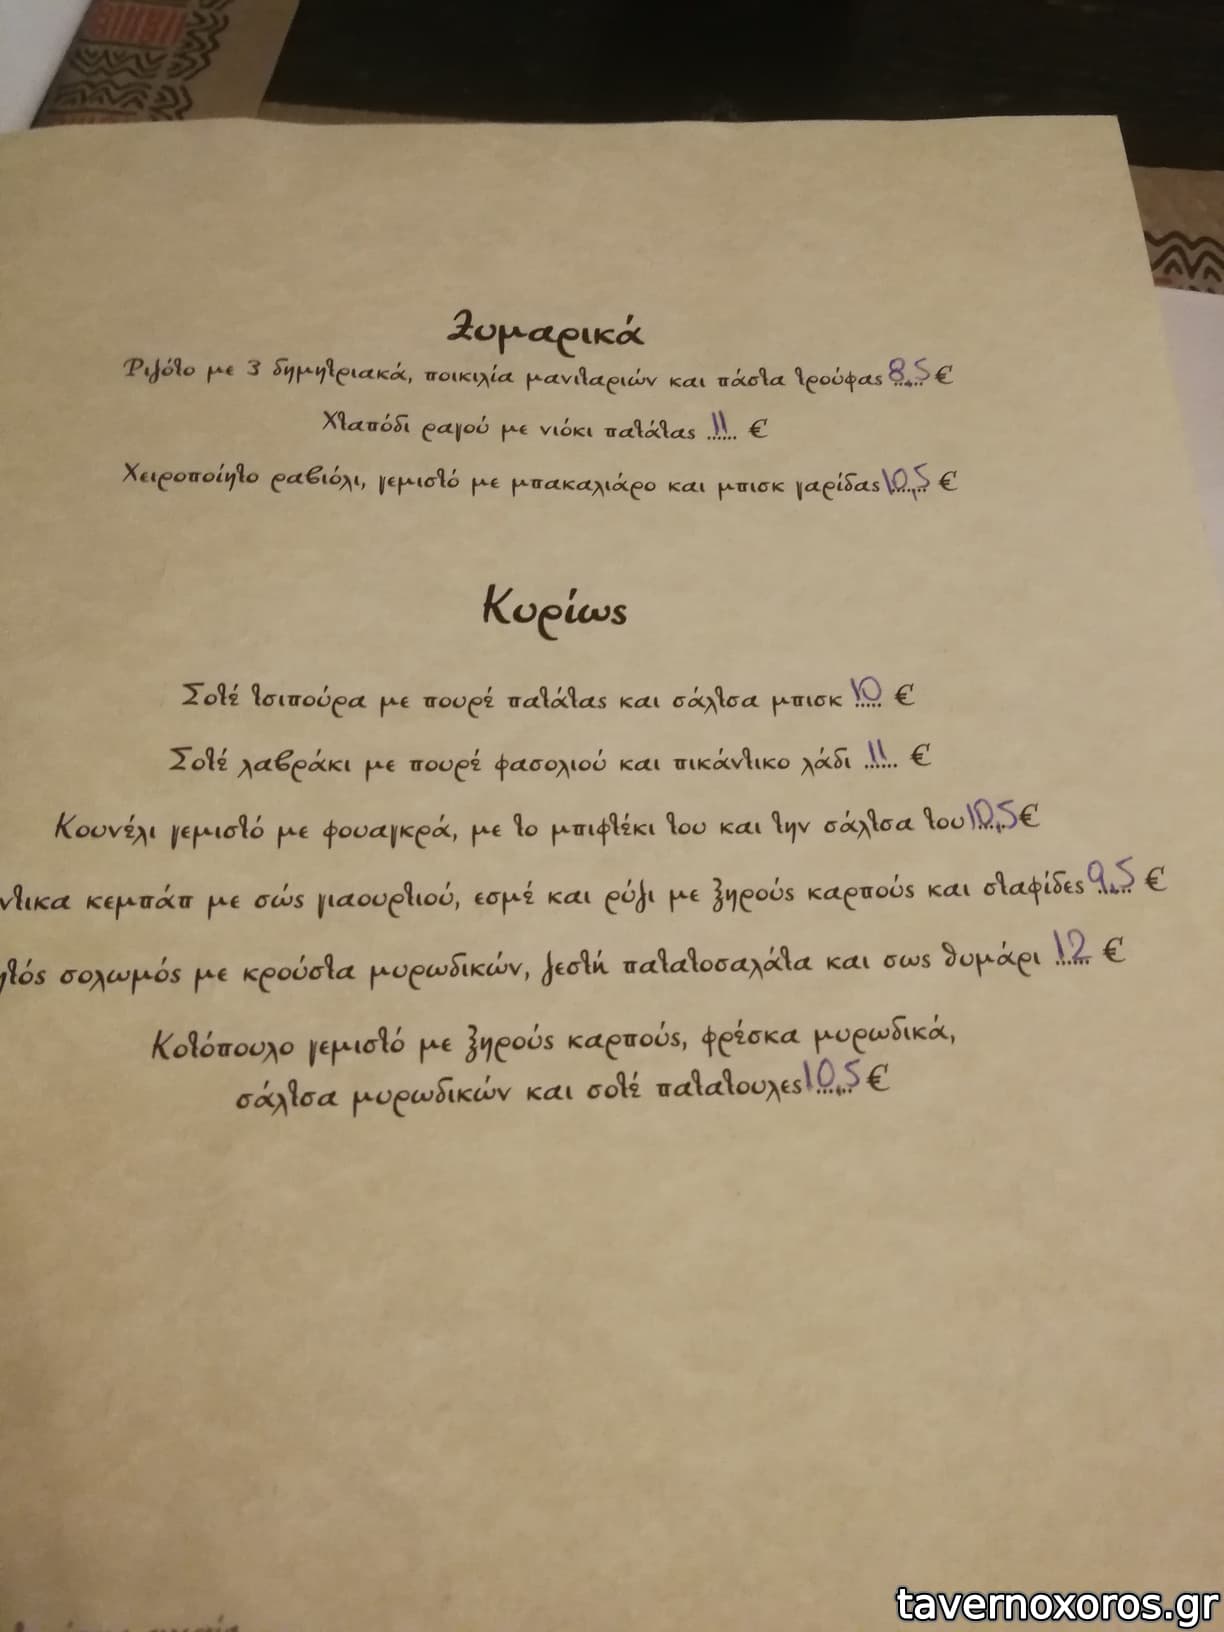 Ζυμαρικά
Ριζότο με 3 δημητριακά, ποικιλία μανιταριών και πάστα τρούφας 8,5 €
Χταπόδι ραγού με νιόκι πατάτας 11 €
Χειροποίητο ραβιόλι, γεμιστό με μπακαλιάρο και μπισκ γαρίδας 10,5 €
Κυρίως
Σοτέ τσιπούρα με πουρέ πατάτας και σάλτσα μπισκ 10 €
Σοτέ λαβράκι με πουρέ φασολιού και πικάντικο λάδι 11 €
Κουνέλι γεμιστό με φουαγκρά, με το μπιφτέκι του και την σάλτσα του 10,5 €
κεμπάπ με σώς γιαουρτιού, εσμέ και ρύζι με ξηρούς καρπούς και σταφίδες 9,5 €
σολωμός με κρούστα μυρωδικών, ζεστή πατατοσαλάτα και σως θυμάρι 12 €
Κοτόπουλο γεμιστό με ξηρούς καρπούς, φρέσκα μυρωδικά,
σάλτσα μυρωδικών και σοτέ πατατουλες 10,5 €
tavernoxoros.gr